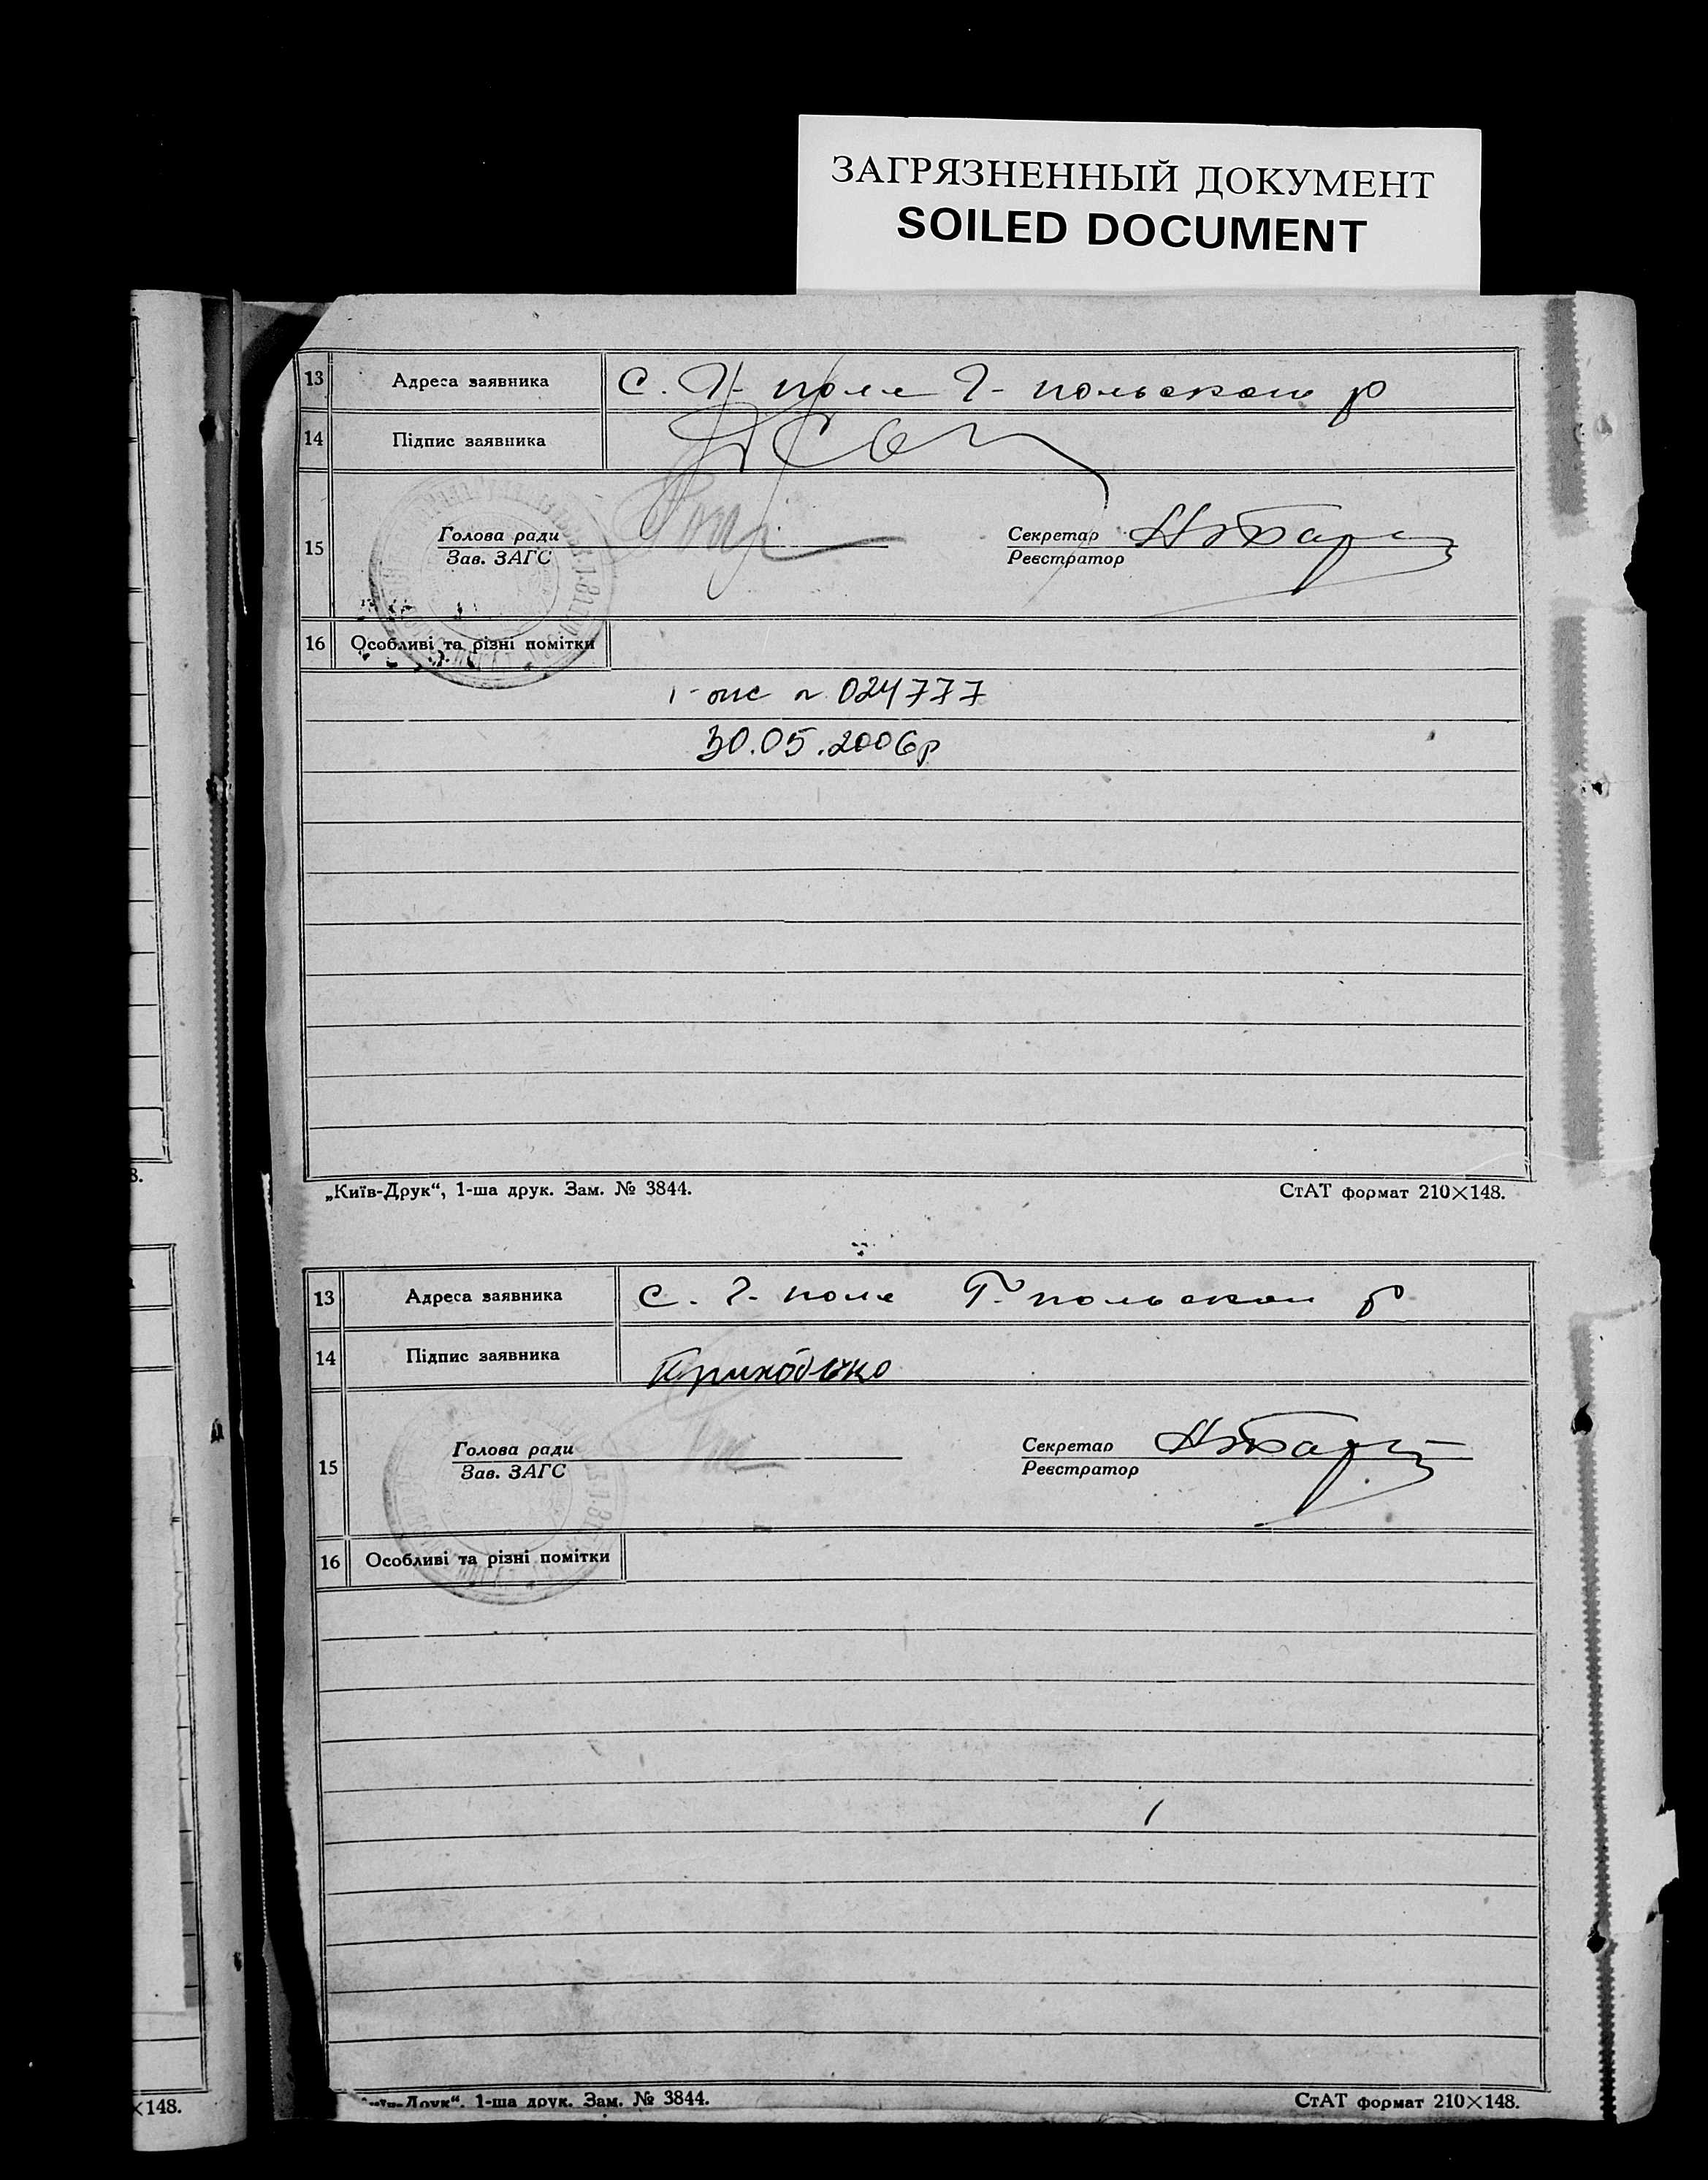 ЗАГРЯЗНЕННЫЙ ДОКУМЕНТ
SOILED DOCUMENT
13 Адреса заявника С. Г- поле Г- польском р
14 Підпис заявника
15 Голова ради Секретар
Зав. ЗАГС Реєстратор
16 Особливі та різні помітки
024777
30.05.2006р
„Київ-Друк“, 1-ша друк. Зам. № 3844. СтАТ формат 210×148.
13 Адреса заявника С. Г- поле Г. польском р
14 Підпис заявника Приходько
15 Голова ради Секретар
Зав. ЗАГС Реєстратор
16 Особливі та різні помітки
їв-Друк“. 1-ша друк. Зам. № 3844. СтАТ формат 210×148.
×148.